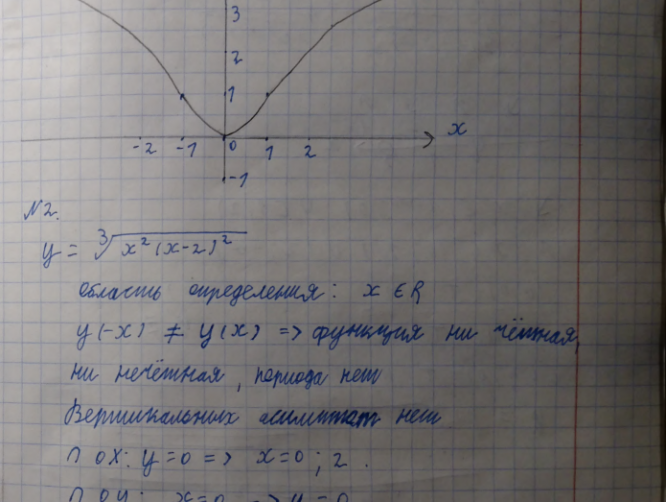 3
2
1
-2 -1 0 1 2 x
-1
N2.
y = ∛(x²(x-2)²)
область определения: x ∈ R
y(-x) ≠ y(x) => функция ни чётная,
ни нечётная, периода нет
Вертикальных асимптот нет
∩ OX: y=0 => x=0; 2.
∩ OY: x=0 => y=0